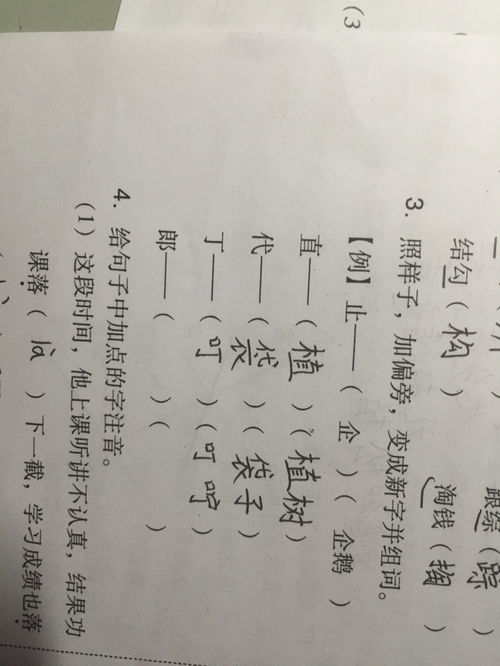 (3
跟综(踪)
结勾(构) 淘钱(掏)
3. 照样子，加偏旁，变成新字并组词。
【例】止——(企)(企鹅)
直——(植)(植树)
代——(袋)(袋子)
丁——(叮)(叮咛)
郎——( )( )
4. 给句子中加点的字注音。
(1) 这段时间，他上课听讲不认真，结果功
课落(là)下一截，学习成绩也落